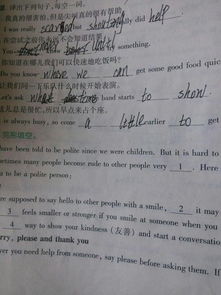 译出下列句子,每空一词。
我真的很害怕,但是尖叫真的很有帮助。
I was really scared but shouting did help
在尝试之前你永远不会知道结果。
You until try something.
你知道在哪儿我们可以快速地吃饭吗?
Do you know where we can get some good food quic
让我们问一下乐队什么时候开始表演。
Let's ask what band starts to show.
这儿总是很忙,所以早点来占个座。
is always busy, so come a little earlier to get
完形填空。
have been told to be polite since we were children. But it is hard to
metimes many people become rude to other people very 1 . Here
to be a polite person:
re supposed to say hello to other people with a smile, 2 it may
3 feels smaller or stronger if you smile at someone when you
4 way to show your kindness (友善) and start a conversatio
rry, please and thank you
ver you need help from someone, say please before asking them. If